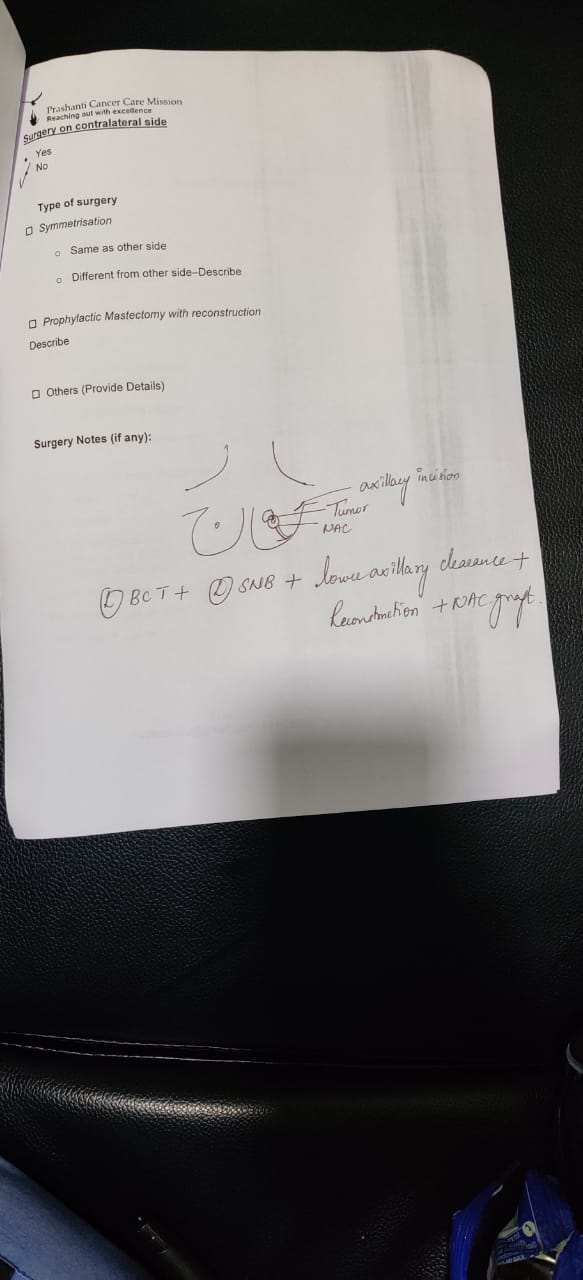 Prashanti Cancer Care Mission
Reaching out with excellence
Surgery on contralateral side
Yes
No
Type of surgery
Symmetrisation
Same as other side
Different from other side–Describe
Prophylactic Mastectomy with reconstruction
Describe
Others (Provide Details)
Surgery Notes (if any):
axillary incision
Tumor
NAC
Ⓛ BCT + Ⓛ SNB + lower axillary clearance +
Reconstruction + NAC graft.